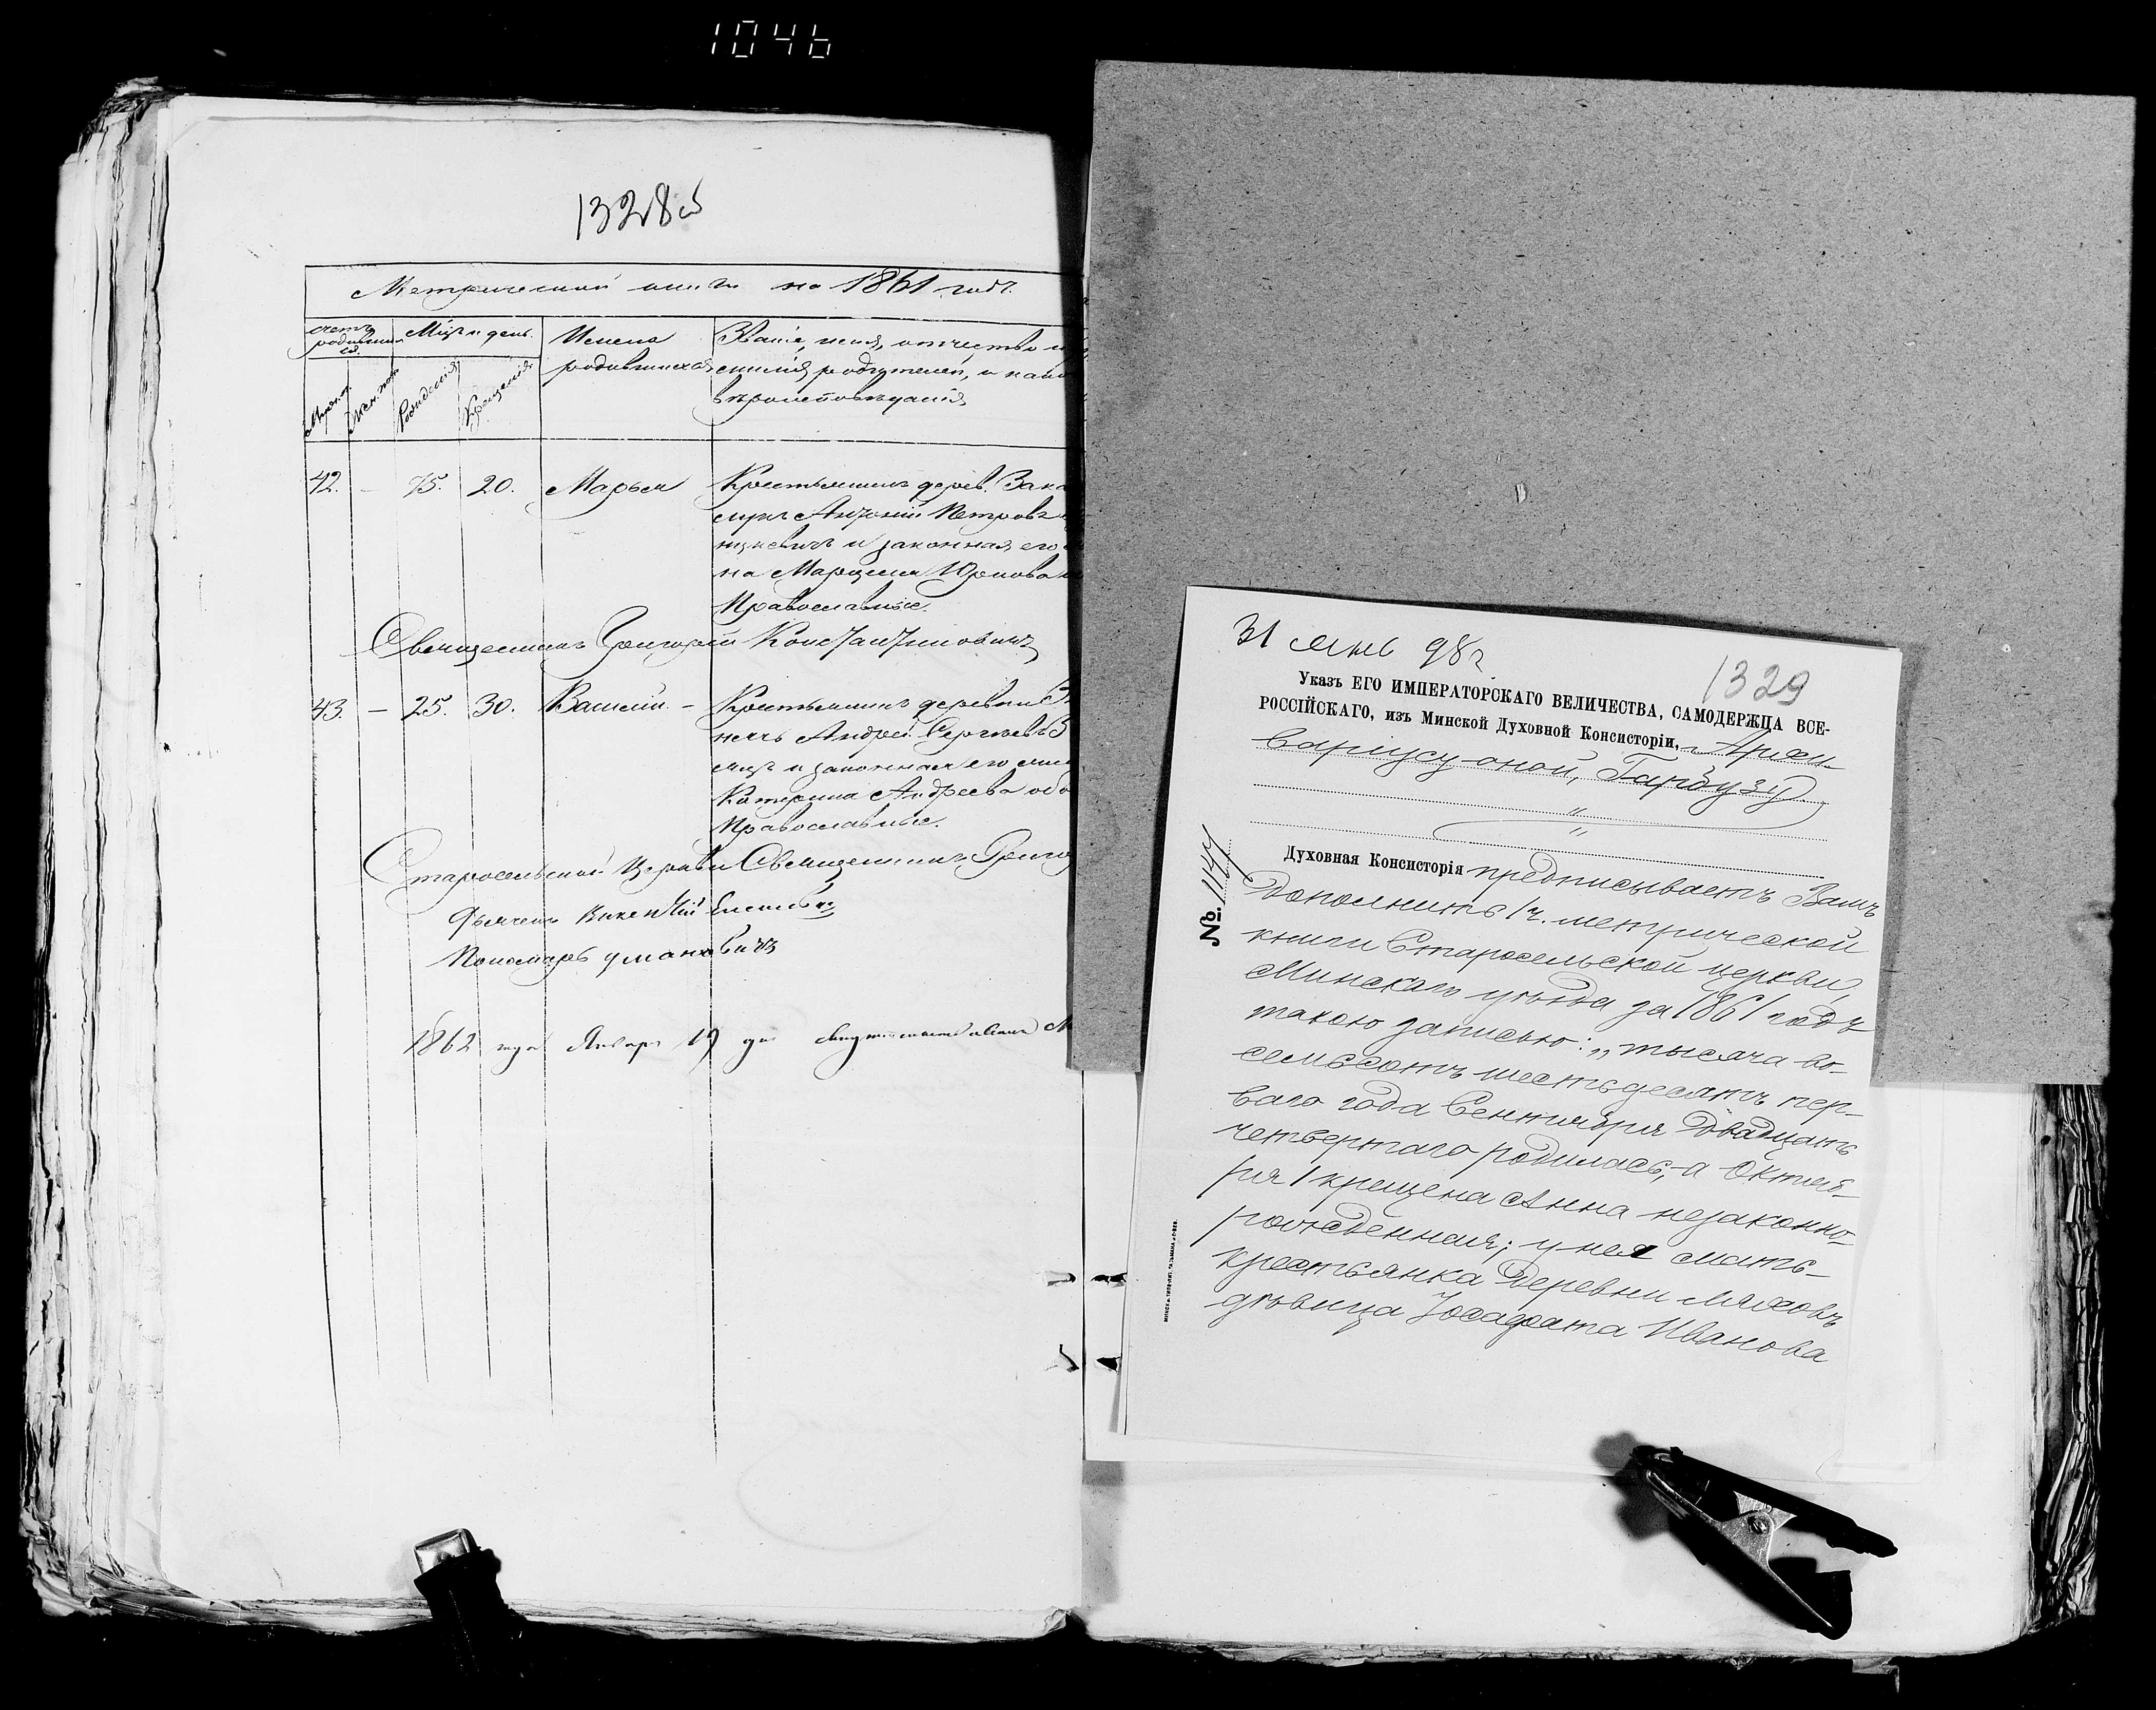 1046
1328об
Метрической книги на 1861 годъ.
Счетъ родившихся. Мѣсяцъ и день. Имена родившихся Званіе, имя, отчество и
родителей, и какого
вѣроисповѣданія
Муж. пол. Жен. пол. Рожденія Крещенія
42. – 15. 20. Марья Крестьянинъ дерев.
Антоній Петровъ
и законная его
на Марцеля Юркова
Православные.
Священникъ Григорій Константиновичъ
43. – 25. 30. Василій – Крестьянинъ деревни
Андрей Сергѣевъ
и законная его
Катерина Андреева обо
Православные.
Старосельской Церкви Священникъ Григо
Дьячекъ Викентій
Пономарь Умановичъ
1862 года Января 19 дня свидѣтельствовалъ
31 янв 98 г
1329
Указъ ЕГО ИМПЕРАТОРСКАГО ВЕЛИЧЕСТВА, САМОДЕРЖЦА ВСЕ-
РОССІЙСКАГО, изъ Минской Духовной Консисторіи, г. Архи-
варіусу оной, Гарбузу.
"
"
№. 1147
Духовная Консисторія предписываетъ Вамъ
дополнить 1 ч. метрической
книги Старосельской церкви,
Минскаго уѣзда за 1861 годъ
такою записью: „тысяча во-
семьсотъ шестьдесятъ пер-
ваго года Сентября двадцать
четвертаго родилась, а Октяб-
ря 1 крещена Анна незаконно-
рожденная; у нея мать –
крестьянка деревни Мяховъ
дѣвица Іосафата Иванова